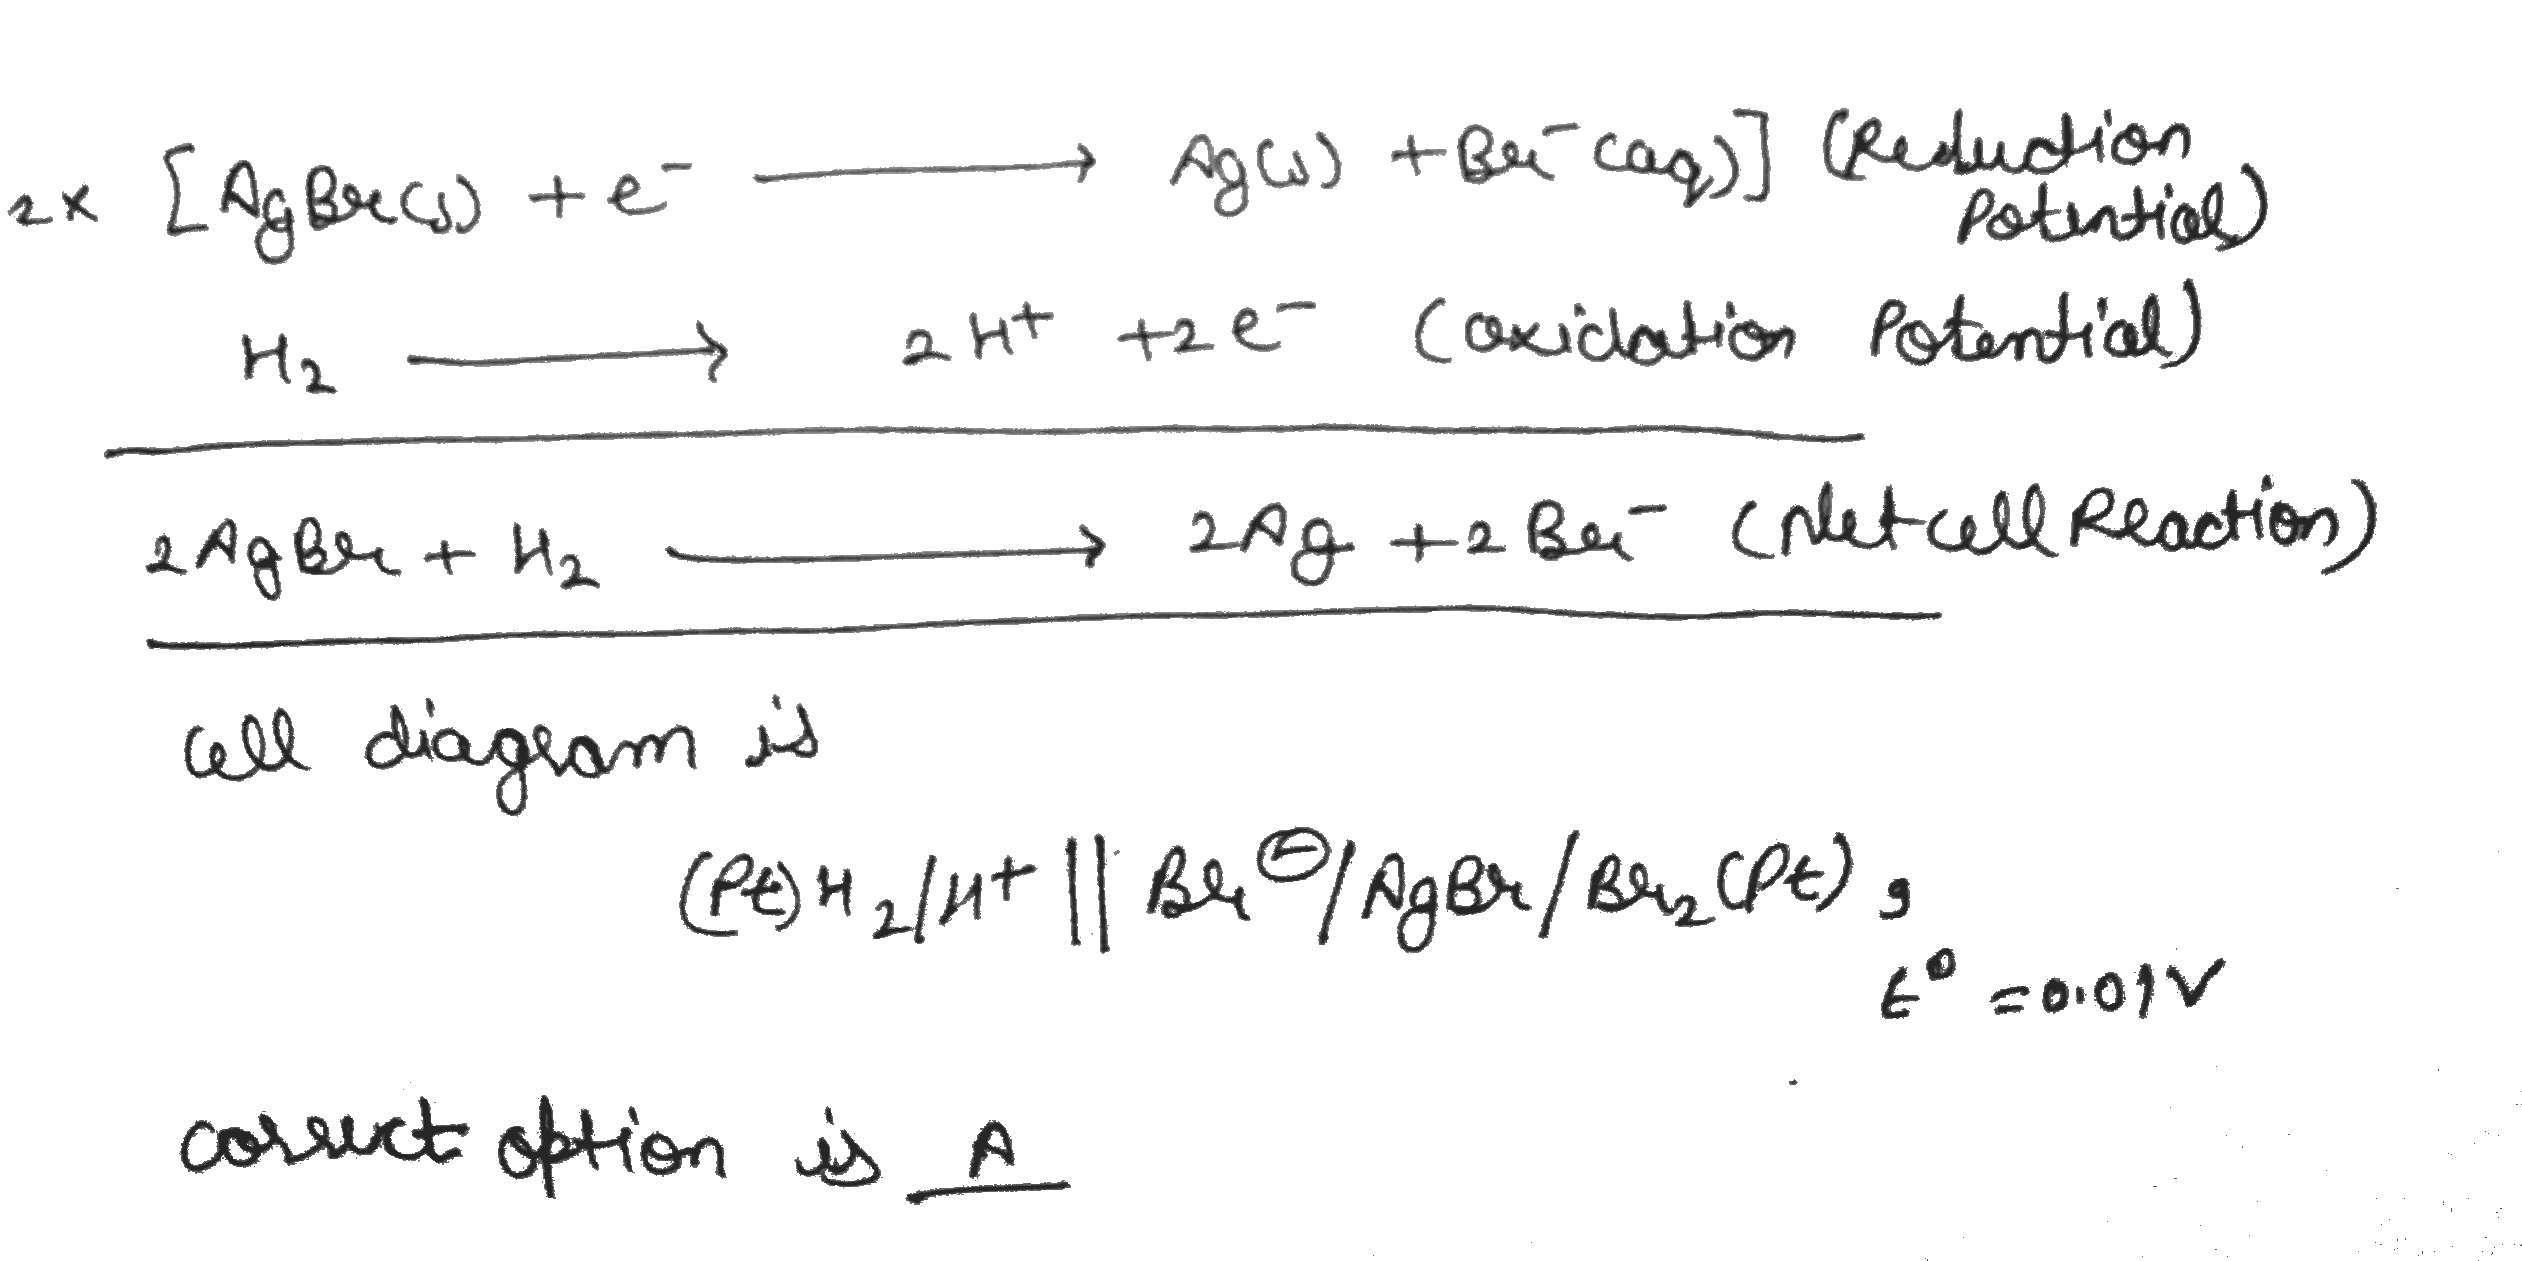 2x [AgBr(s) + e⁻ ⟶ Ag(s) + Br⁻(aq)] (Reduction Potential)
H₂ ⟶ 2H⁺ + 2e⁻ (oxidation Potential)
2AgBr + H₂ ⟶ 2Ag + 2Br⁻ (Net cell Reaction)
cell diagram is
(Pt) H₂/H⁺ || Br⊖/AgBr/Br₂(Pt),
E⁰ = 0.01V
correct option is A